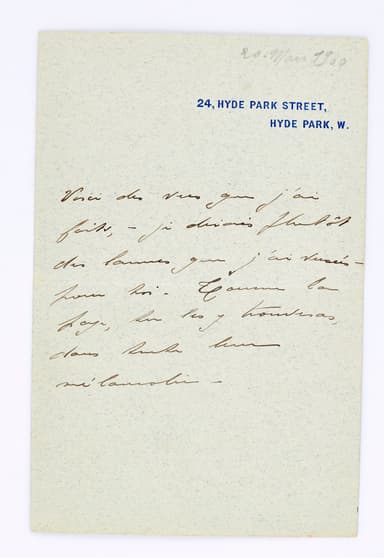 20. Mars 1900
24, HYDE PARK STREET,
HYDE PARK, W.
Voici des vers que j'ai
faits, – je dirais plutôt
des larmes que j'ai versées –
pour toi. Tourne la
page, tu les y trouveras,
dans toute leur
mélancolie –